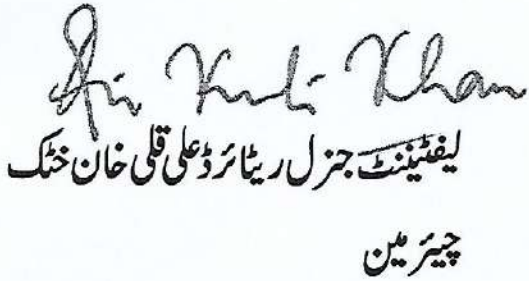 Ali Kuli Khan
لیفٹیننٹ جنرل ریٹائرڈ علی قلی خان خٹک
چیئرمین